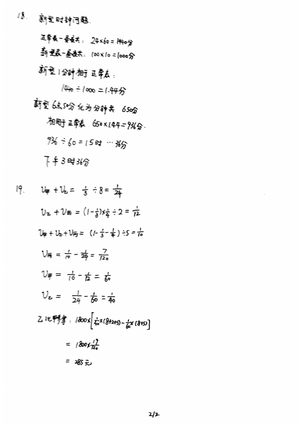 18. 新型时钟问题.
正常表一昼夜共: 24×60=1440分
新型表一昼夜共: 100×10=1000分
新型1分钟相当于正常表:
1440÷1000=1.44分
新型6点50分 化为分钟共 650分
相当于正常表 650×1.44=936分.
936÷60=15时…36分
下午3时36分
19. V甲+V乙=1/3÷8=1/24
V乙+V丙=(1-1/3)×1/4÷2=1/12
V甲+V乙+V丙=(1-1/3-1/6)÷5=1/10
V丙=1/10-1/24=7/120
V甲=1/10-1/12=1/60
V乙=1/24-1/60=1/40
=285元
2/2